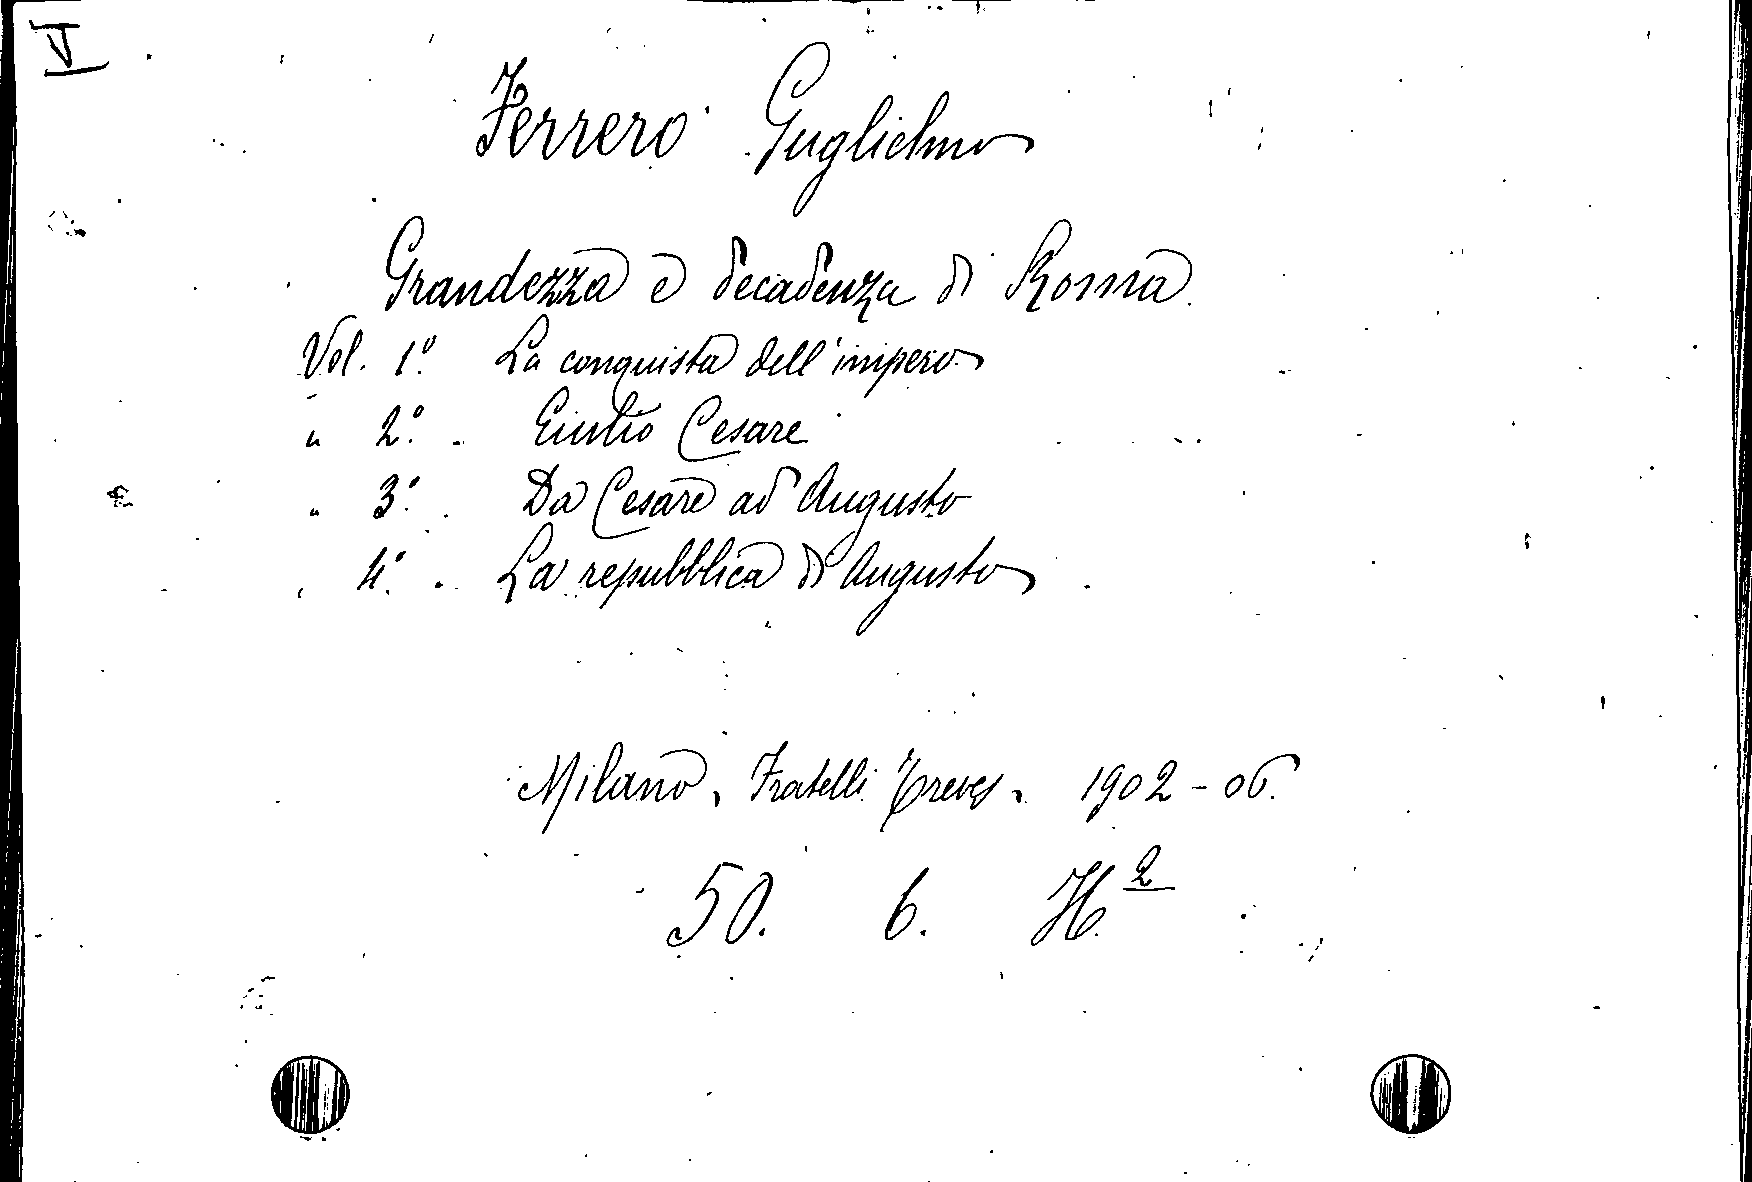 V
Ferrero Guglielmo
Grandezza e decadenza di Roma
Vol. 1.º La conquista dell'impero
" 2.º - Giulio Cesare
" 3.º - Da Cesare ad Augusto
" 4.º - La repubblica di Augusto
Milano, Fratelli Treves, 1902-06.
50. 6. H.2